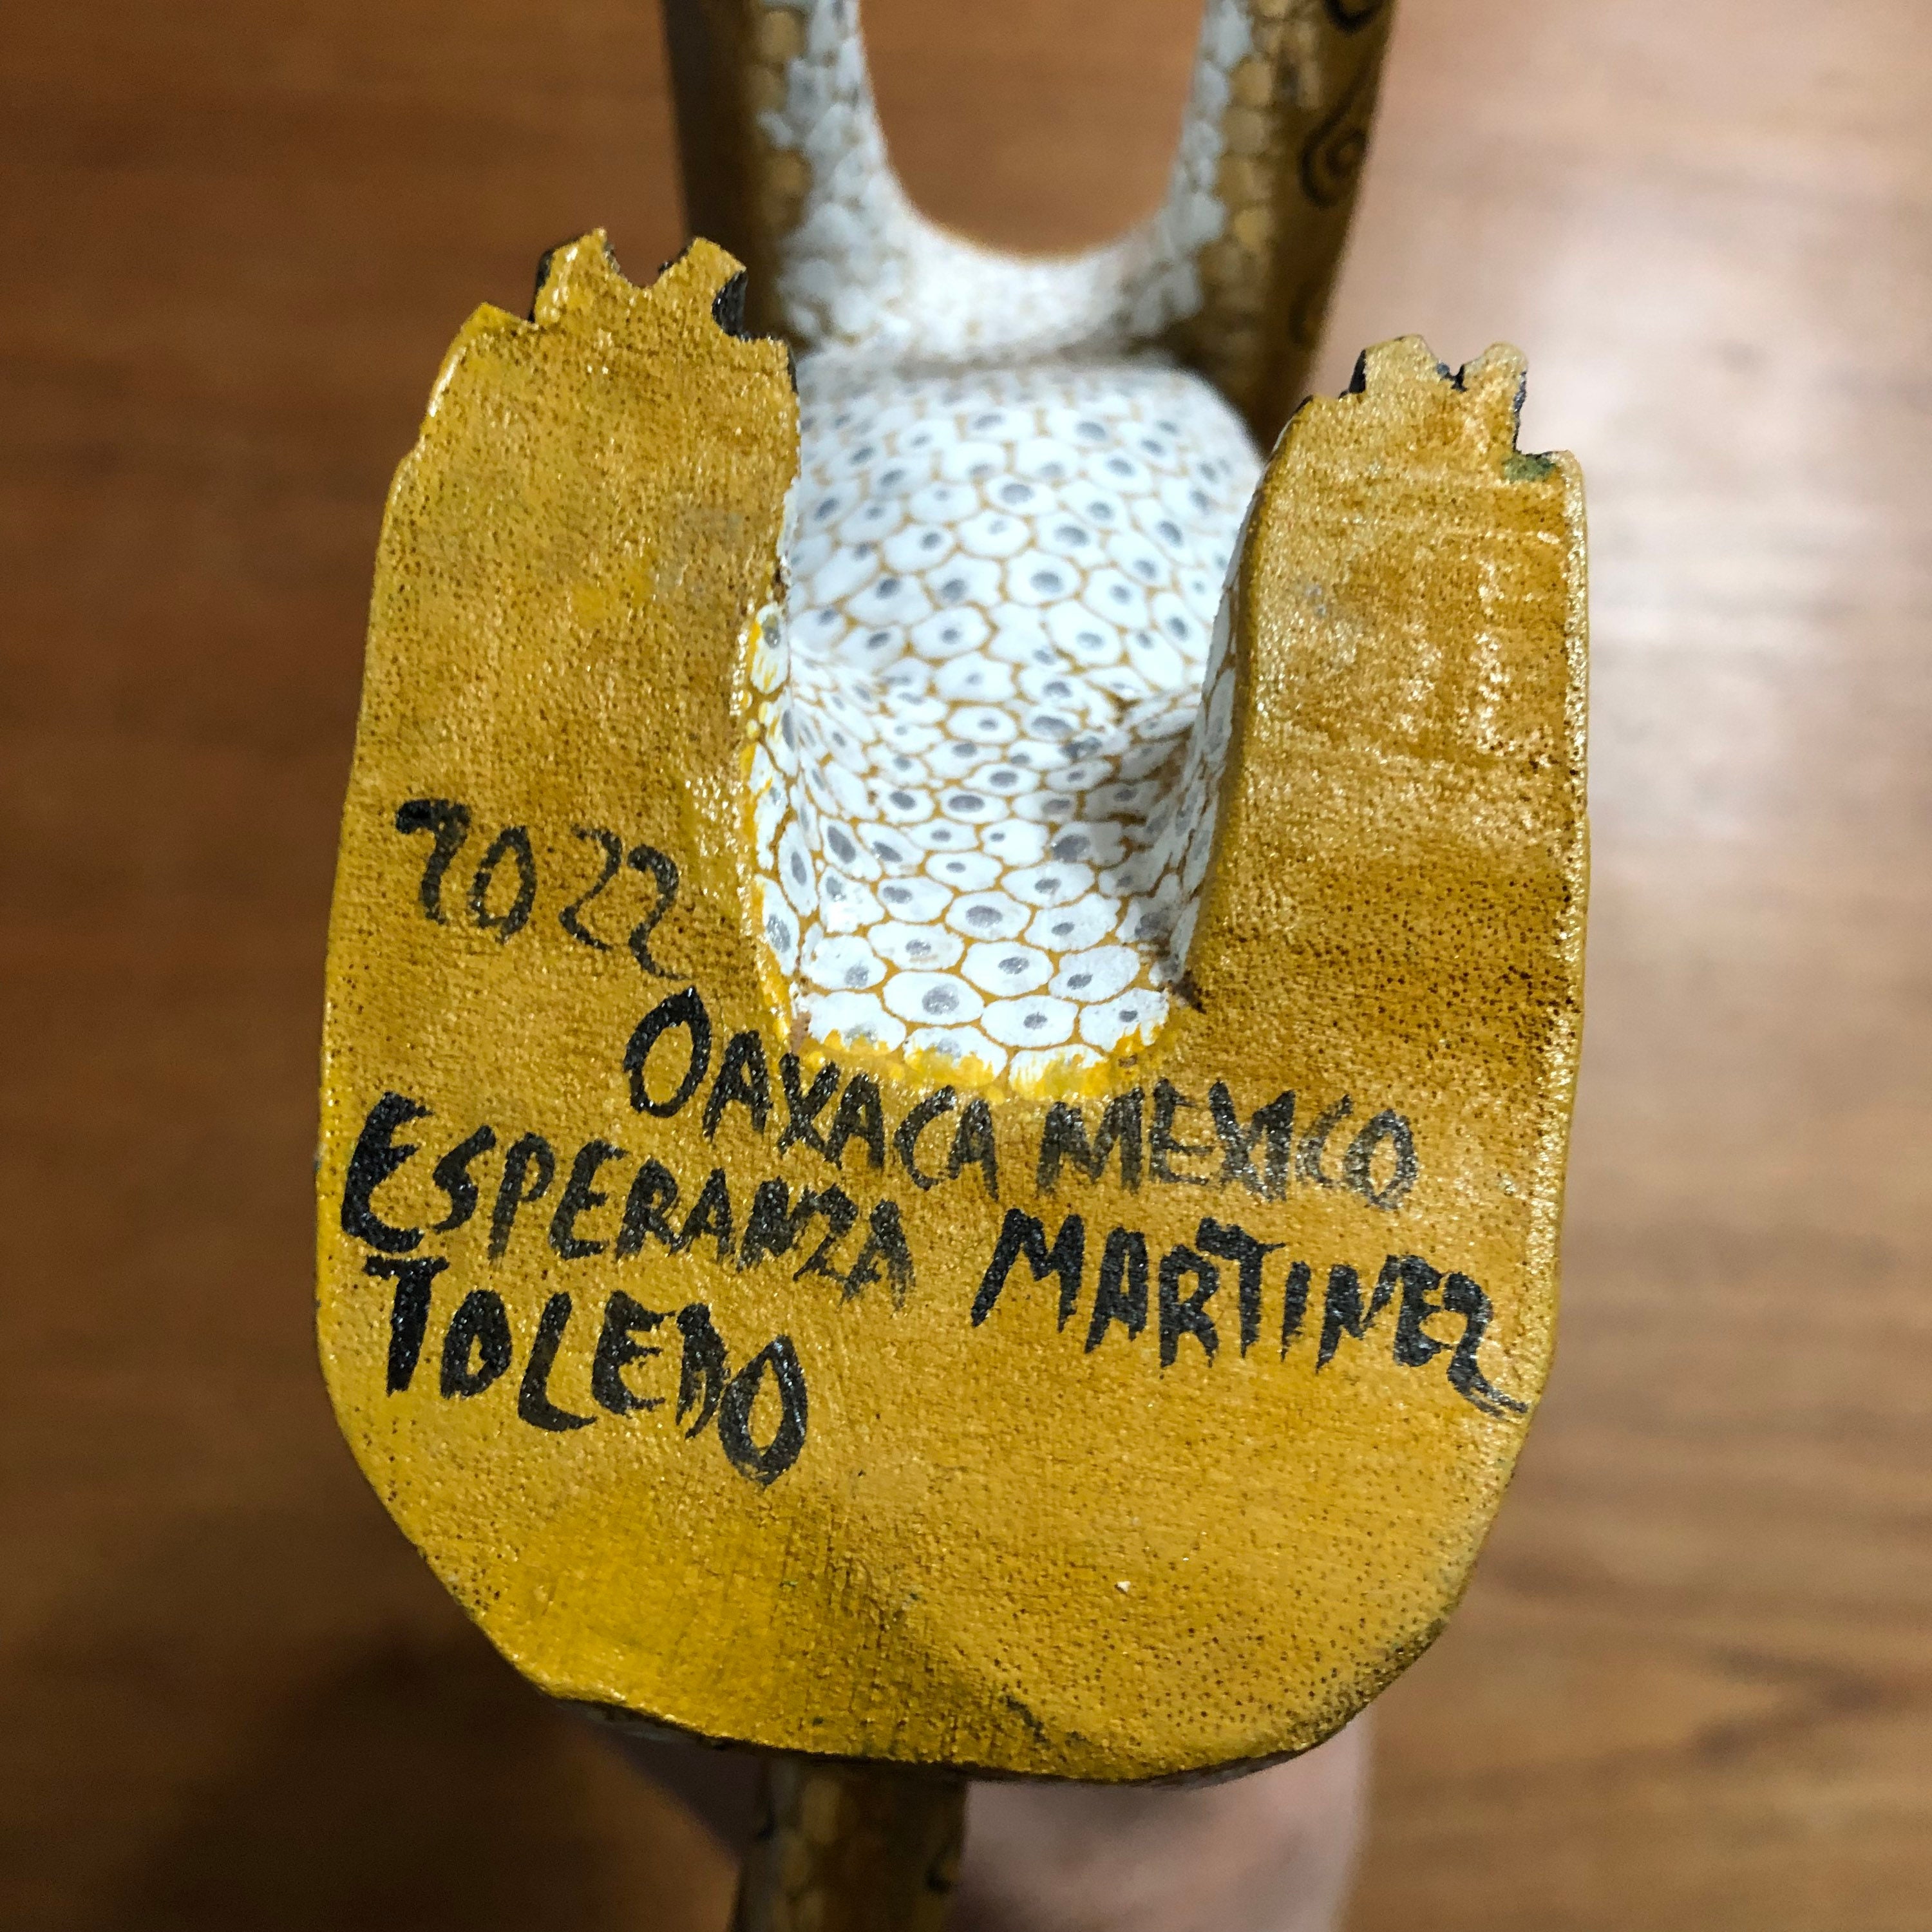 2022
OAXACA MEXICO
ESPERANZA MARTINEZ
TOLEDO